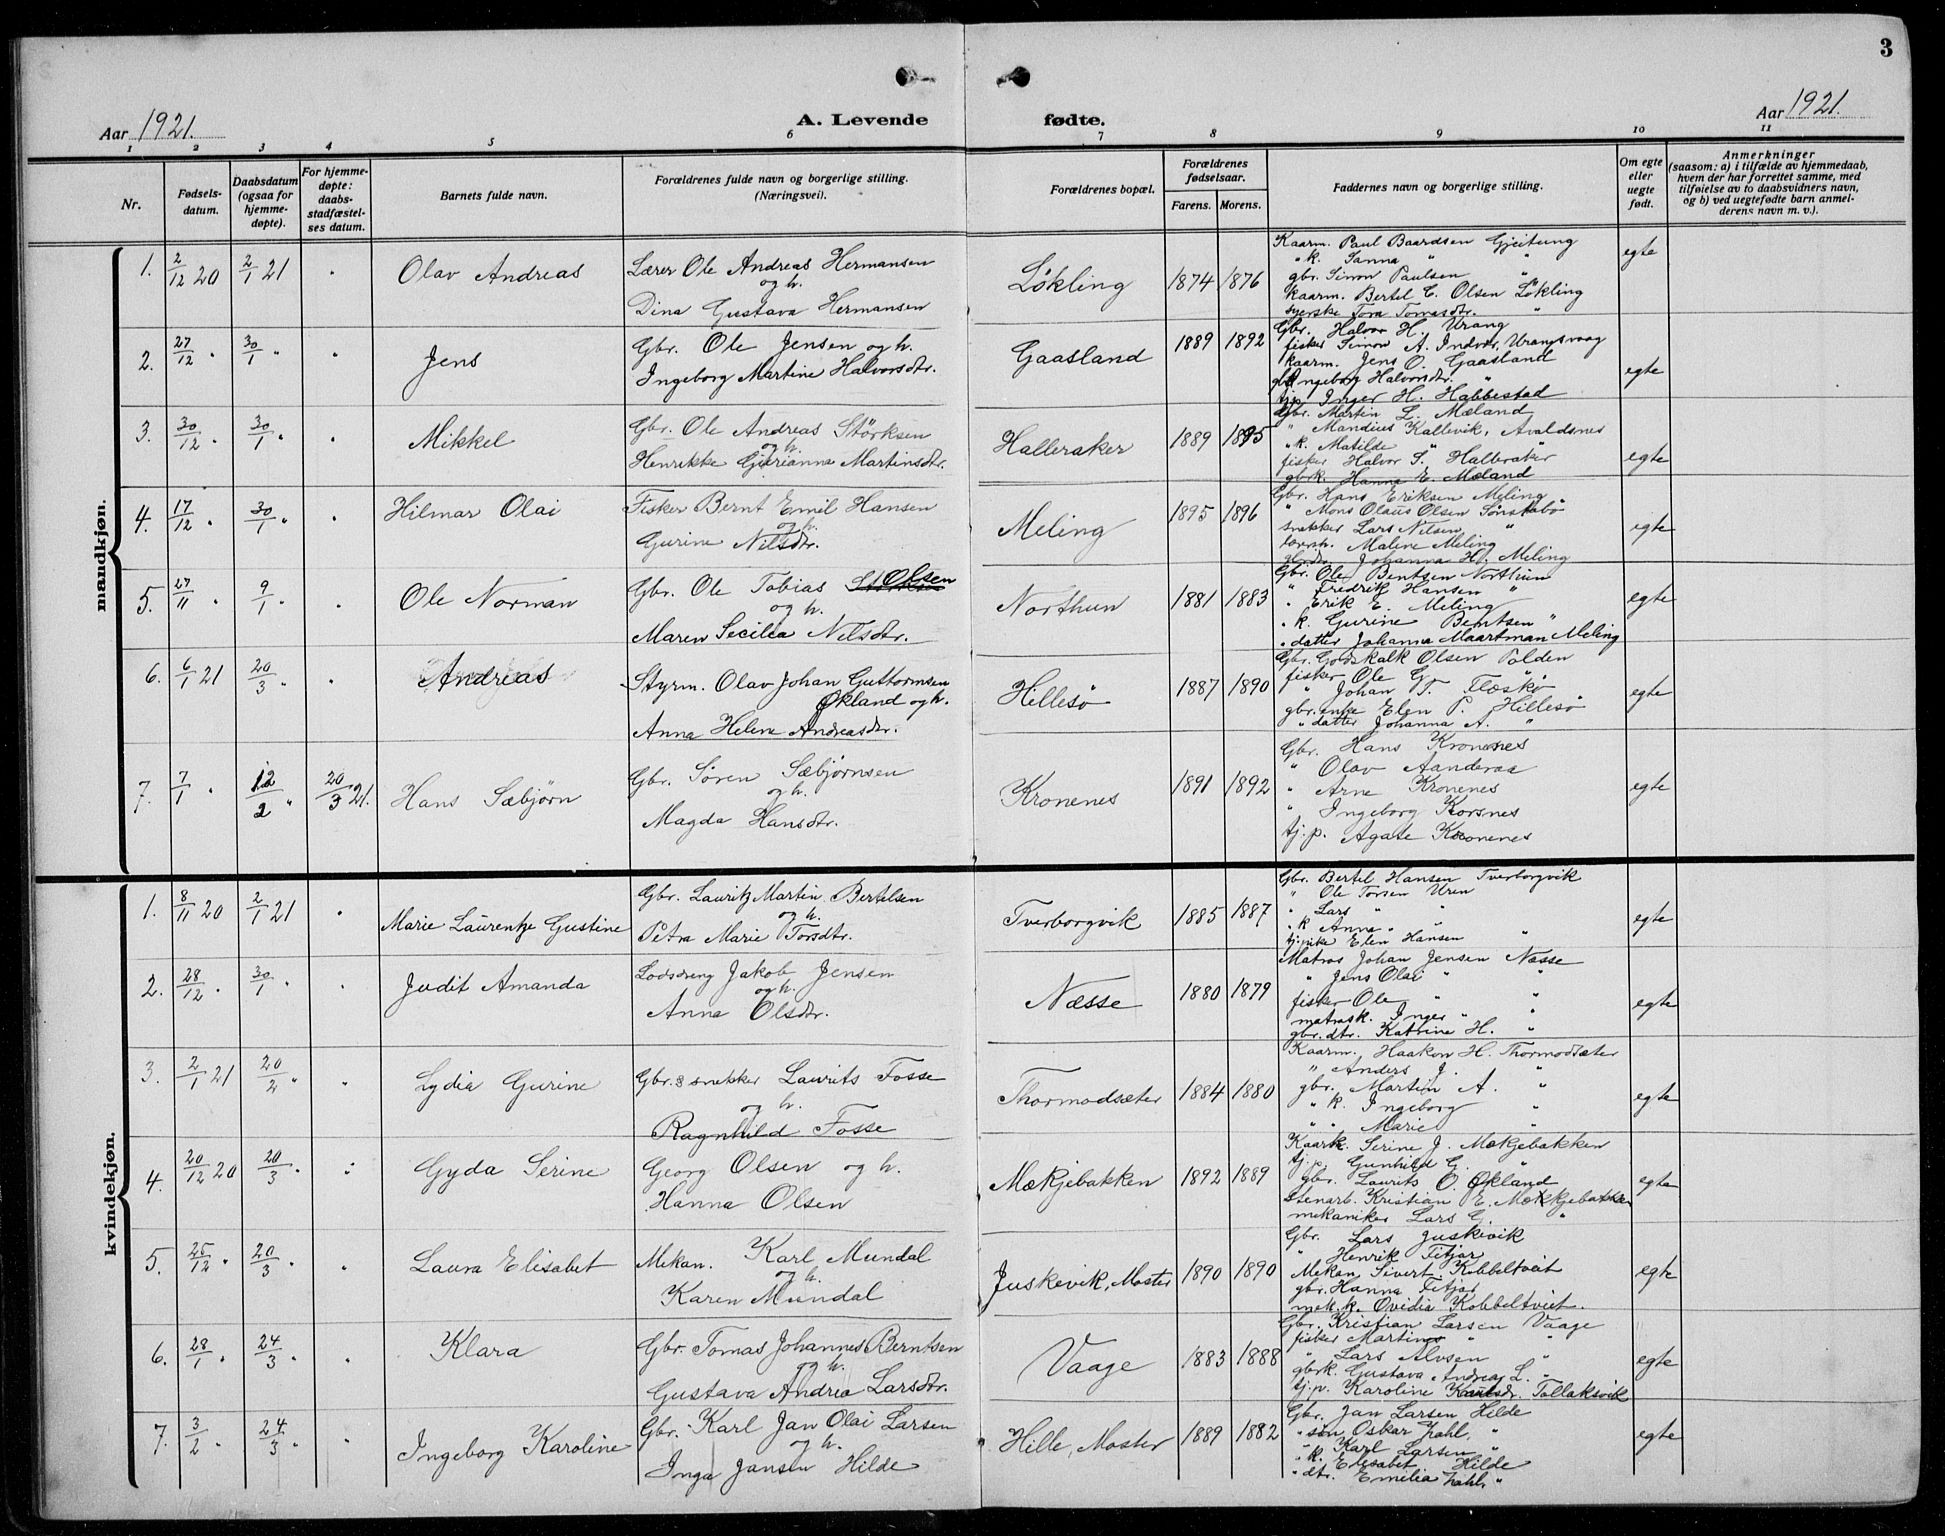 3
Aar 1921.
A. Levende fødte.
Aar 1921.
1 2 3 4 5 6 7 8 9 10 11
Nr.
Fødsels-
datum.
Daabsdatum
(ogsaa for
hjemme-
døpte).
For hjemme-
døpte:
daabs-
stadfæstel-
ses datum.
Barnets fulde navn.
Forældrenes fulde navn og borgerlige stilling.
(Næringsvei).
Forældrenes bopæl.
Forældrenes
fødselsaar.
Farens. Morens.
Faddernes navn og borgerlige stilling.
Om egte
eller
uegte
født.
Anmerkninger
(saasom: a) i tilfælde av hjemmedaab,
hvem der har forrettet samme, med
tilføielse av to daabsvidners navn,
og b) ved uegtefødte barn anmel-
derens navn m. v.).
mandkjøn.
1. 2/12 20 2/1 21 " Olav Andreas
Lærer Ole Andreas Hermansen
og h.
Dina Gustava Hermansen
Løkling 1874 1876
Kaarm. Paul Baardsen Gjeitung
" k. Sanna " "
gbr. Simon Paulsen "
Kaarm. Bertel C. Olsen Løkling
syerske Tora Tomasdtr. "
egte
2. 27/12 " 30/1 " " Jens
Gbr. Ole Jensen og h.
Ingeborg Martine Halvorsdtr.
Gaasland 1889 1892
Gbr. Halvor H. Urang
fisker Simon A. Indvær, Urangsvaag
kaarm. Jens O. Gaasland
Ingeborg Halvorsdtr. "
Inger H. Habbestad
egte
3. 30/12 " 30/1 " " Mikkel
Gbr. Ole Andreas Størksen
og h.
Henrikke Gjerianna Martinsdtr.
Halleraker 1889 1895
Gbr. Martin L. Mæland
" Mandius Kallevik, Avaldsnes
" k. Matilde " "
fisker Halvor S. Halleraker
gbrk. Hanna E. Mæland
egte
4. 17/12 " 30/1 " " Hilmar Olai
Fisker Bernt Emil Hansen
og h.
Gurine Nilsdtr.
Meling 1895 1896
Gbr. Hans Eriksen Meling
" Mons Olaus Olsen Sønstabø
snekker Lars Nilsen "
Malene Meling
Johanna H. Meling
egte
5. 27/11 " 9/1 " " Ole Norman
Gbr. Ole Tobias Olsen
og h.
Maren Secilea Nilsdtr.
Northun 1881 1883
Gbr. Ole Bentsen Northun
" Fredrik Hansen "
" Erik E. Meling
" k. Gurine Bentsen "
" datter Johanna Maartman Meling
egte
6. 6/1 21 20/3 " " Andreas
Styrm. Olav Johan Guttormsen
Økland og h.
Anna Helene Andreasdtr.
Hillesø 1887 1890
Gbr. Godskalk Olsen Polden
fisker Ole G. "
" Johan T. Flæskø
gbr. enke Elen P. Hillesø
" datter Johanna A. "
egte
7. 7/1 " 12/2 " 20/3 21. Hans Sæbjørn
Gbr. Søren Sæbjørnsen
og h.
Magda Hansdtr.
Kronenes 1891 1892
Gbr. Hans Kronenes
" Olav Aanderaa
" Arne Kronenes
" Ingeborg Korsnes
tj.p. Agate Kronenes
egte
kvindekjøn.
1. 8/11 20 2/1 21 " Marie Laurentze Gustine
Gbr. Lauritz Martin Bertelsen
og h.
Petra Marie Torsdtr.
Tverborgvik 1885 1887
Gbr. Bertel Hansen Tverborgvik
" Ole Torsen Uren
" Lars " "
" k Anna " "
Elen Hansen "
egte
2. 28/12 " 30/1 " " Judit Amanda
Lodsdreng Jakob Jensen
og h.
Anna Olsdtr.
Næsse 1880 1879
Matros Johan Jensen Næsse
" Jens Olai " "
fisker Ole " "
matrosk. Inger " "
gbr. dtr. Katrine H. "
egte
3. 2/1 21 20/2 " " Lydia Gurine
Gbr. & snekker Laurits Fosse
og h.
Ragnhild Fosse
Thormodsæter 1884 1880
Kaarm. Haakon H. Thormodsæter
" Anders J. "
gbr. Martin A. "
" k. Ingeborg "
" " Marie "
egte
4. 20/12 20 20/3 " " Gyda Serine
Georg Olsen og h.
Hanna Olsen
Mækjebakken 1892 1889
Kaark. Serine J. Mækjebakken
tj.p. Gunhild G. "
gbr. Laurits O. Økland
Stenarb. Kristian E. Mækjebakken
mekaniker Lars G. "
egte
5. 25/12 " 20/3 " " Laura Elisabet
Mekan. Karl Mundal
og h.
Karen Mundal
Juskevik, Moster 1890 1890
Gbr. Lars Juskevik
" Henrik Fitjar
Mekan Sivert Kobbeltveit
gbr. Hanna Fitjar
mek.k. Ovidia Kobbeltveit.
egte
6. 28/1 " 24/3 " " Klara
Gbr. Tomas Johannes Berntsen
og h.
Gustava Andrea Larsdtr.
Vaage 1883 1888
Gbr. Kristian Larsen Vaage
fisker Martinus " "
" Lars Alvsen "
gbrk. Gustava Andrea L. "
tj.p. Karoline Tollaksvik
egte
7. 3/2 " 24/3 " " Ingeborg Karoline
Gbr. Karl Jan Olai Larsen
og h.
Inga Jansen Hilde
Hille, Moster 1889 1882
Gbr. Jan Larsen Hilde
" søn Oskar Zahl, "
" Karl Larsen "
" k. Elisabet Hilde
" dtr. Emelia Zahl, "
egte